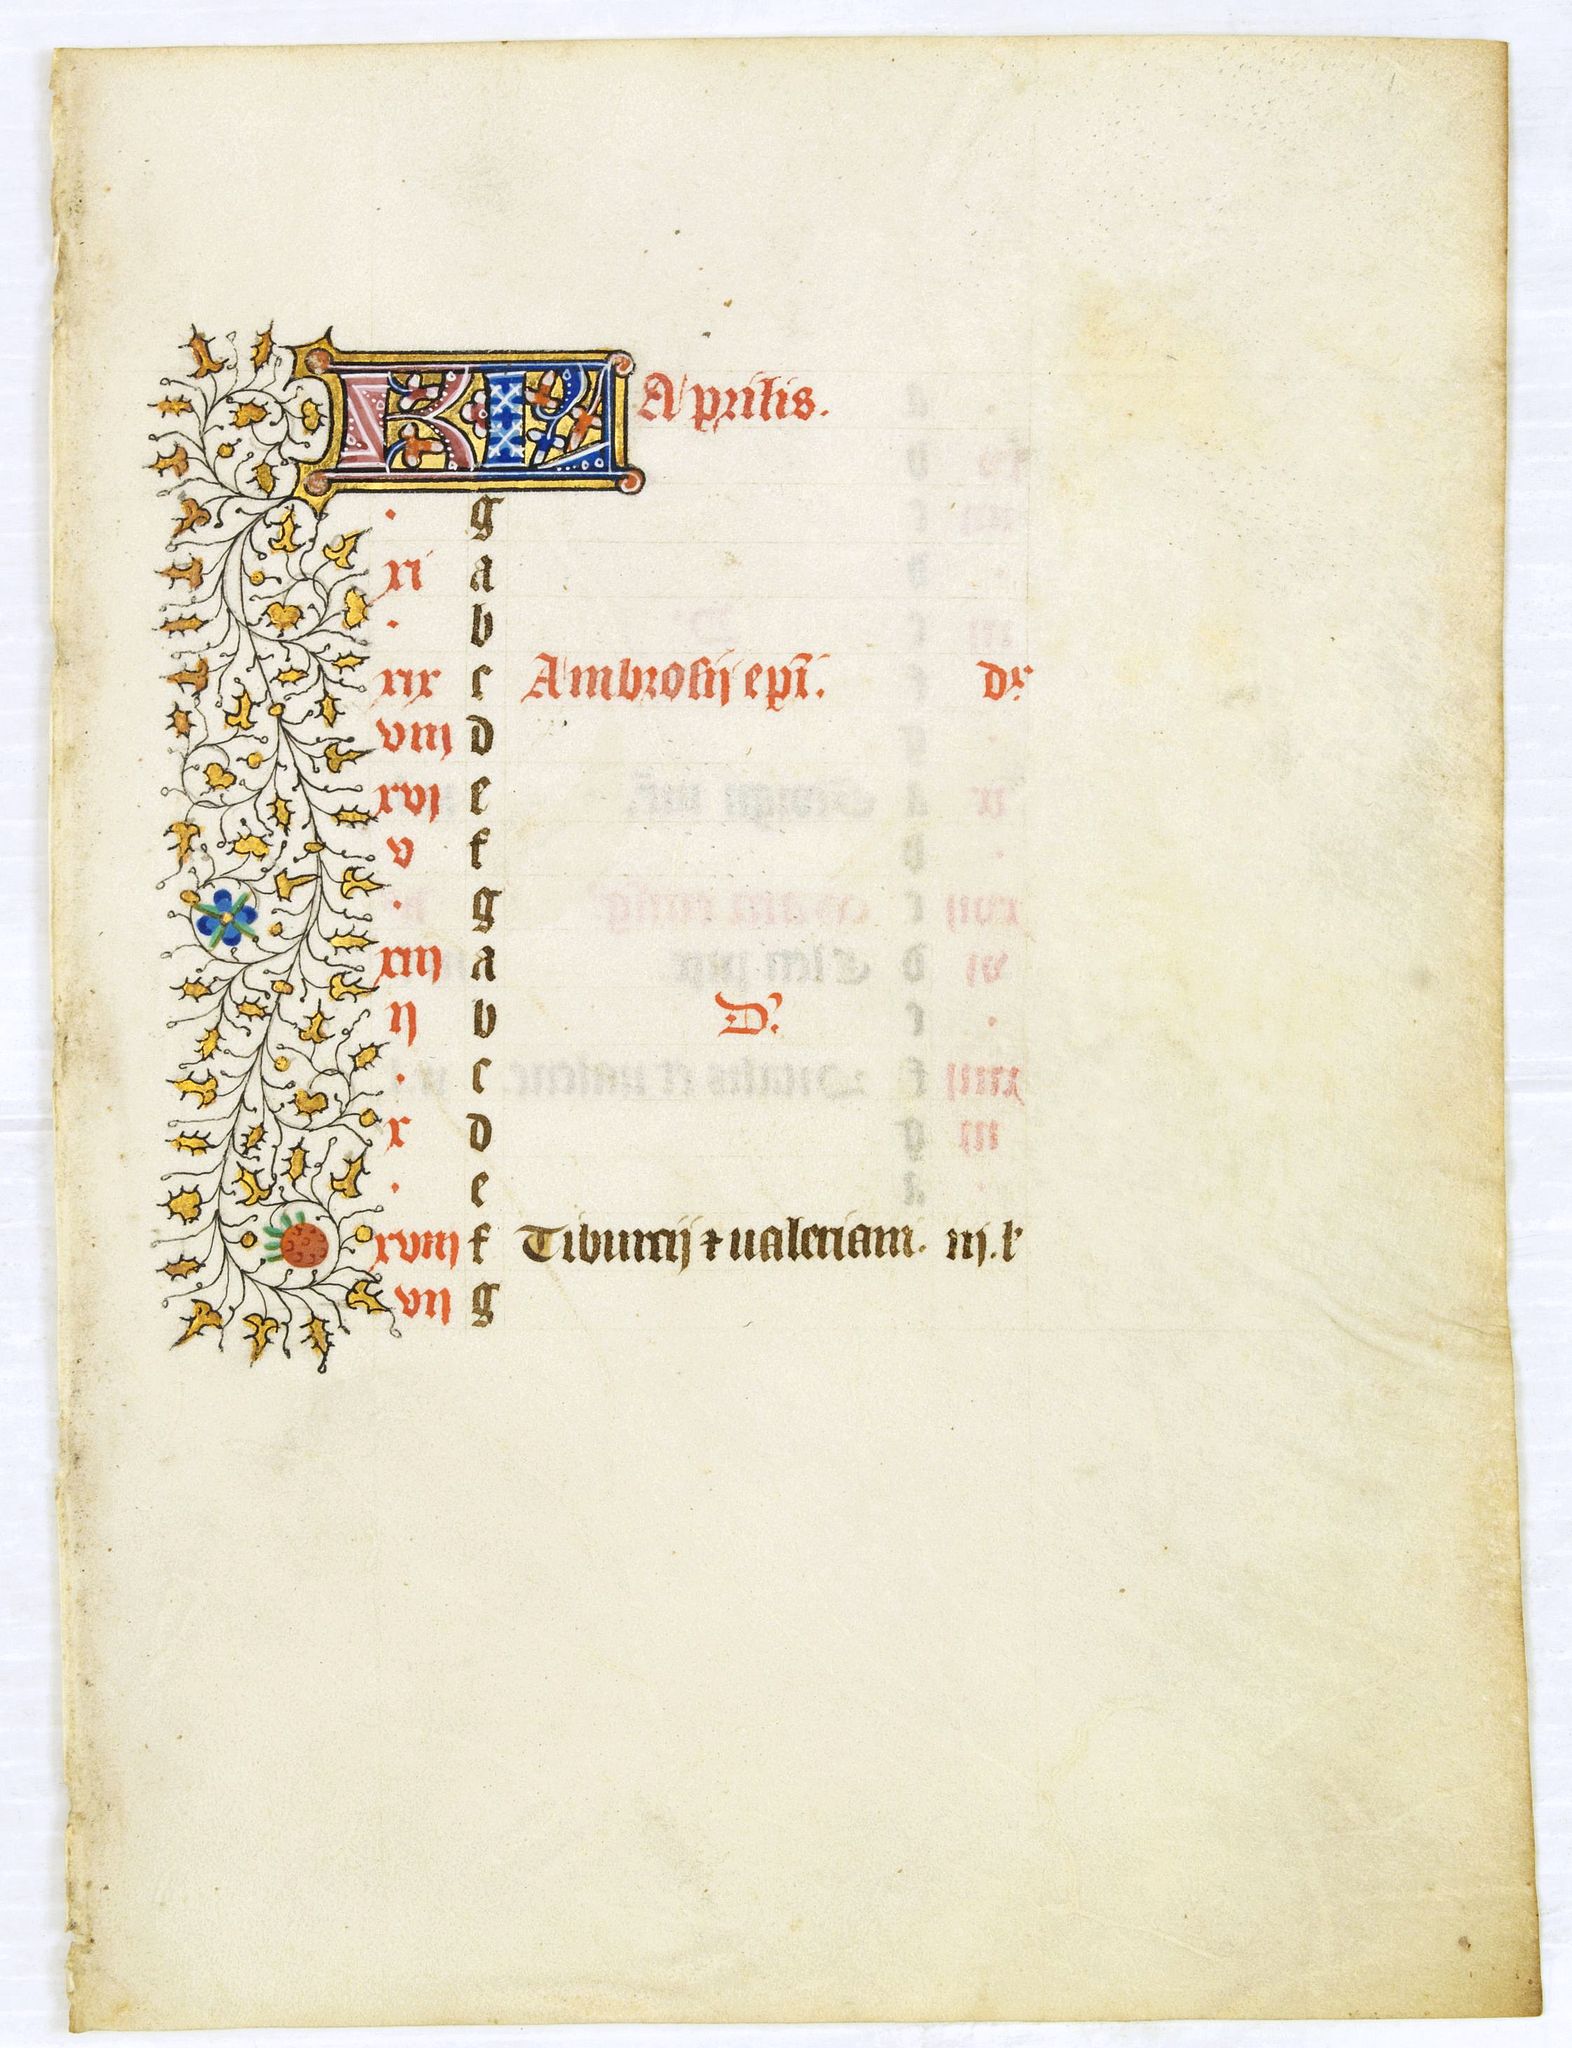 KL Aprilis.
. g
xi a
. b
xix c Ambrosij epi. dx
viii d
xvj e
v f
. g
xiij a
ij b D.
. c
x d
. e
xviij f Tiburcij ⁊ ualeriani. iij. l
vij g